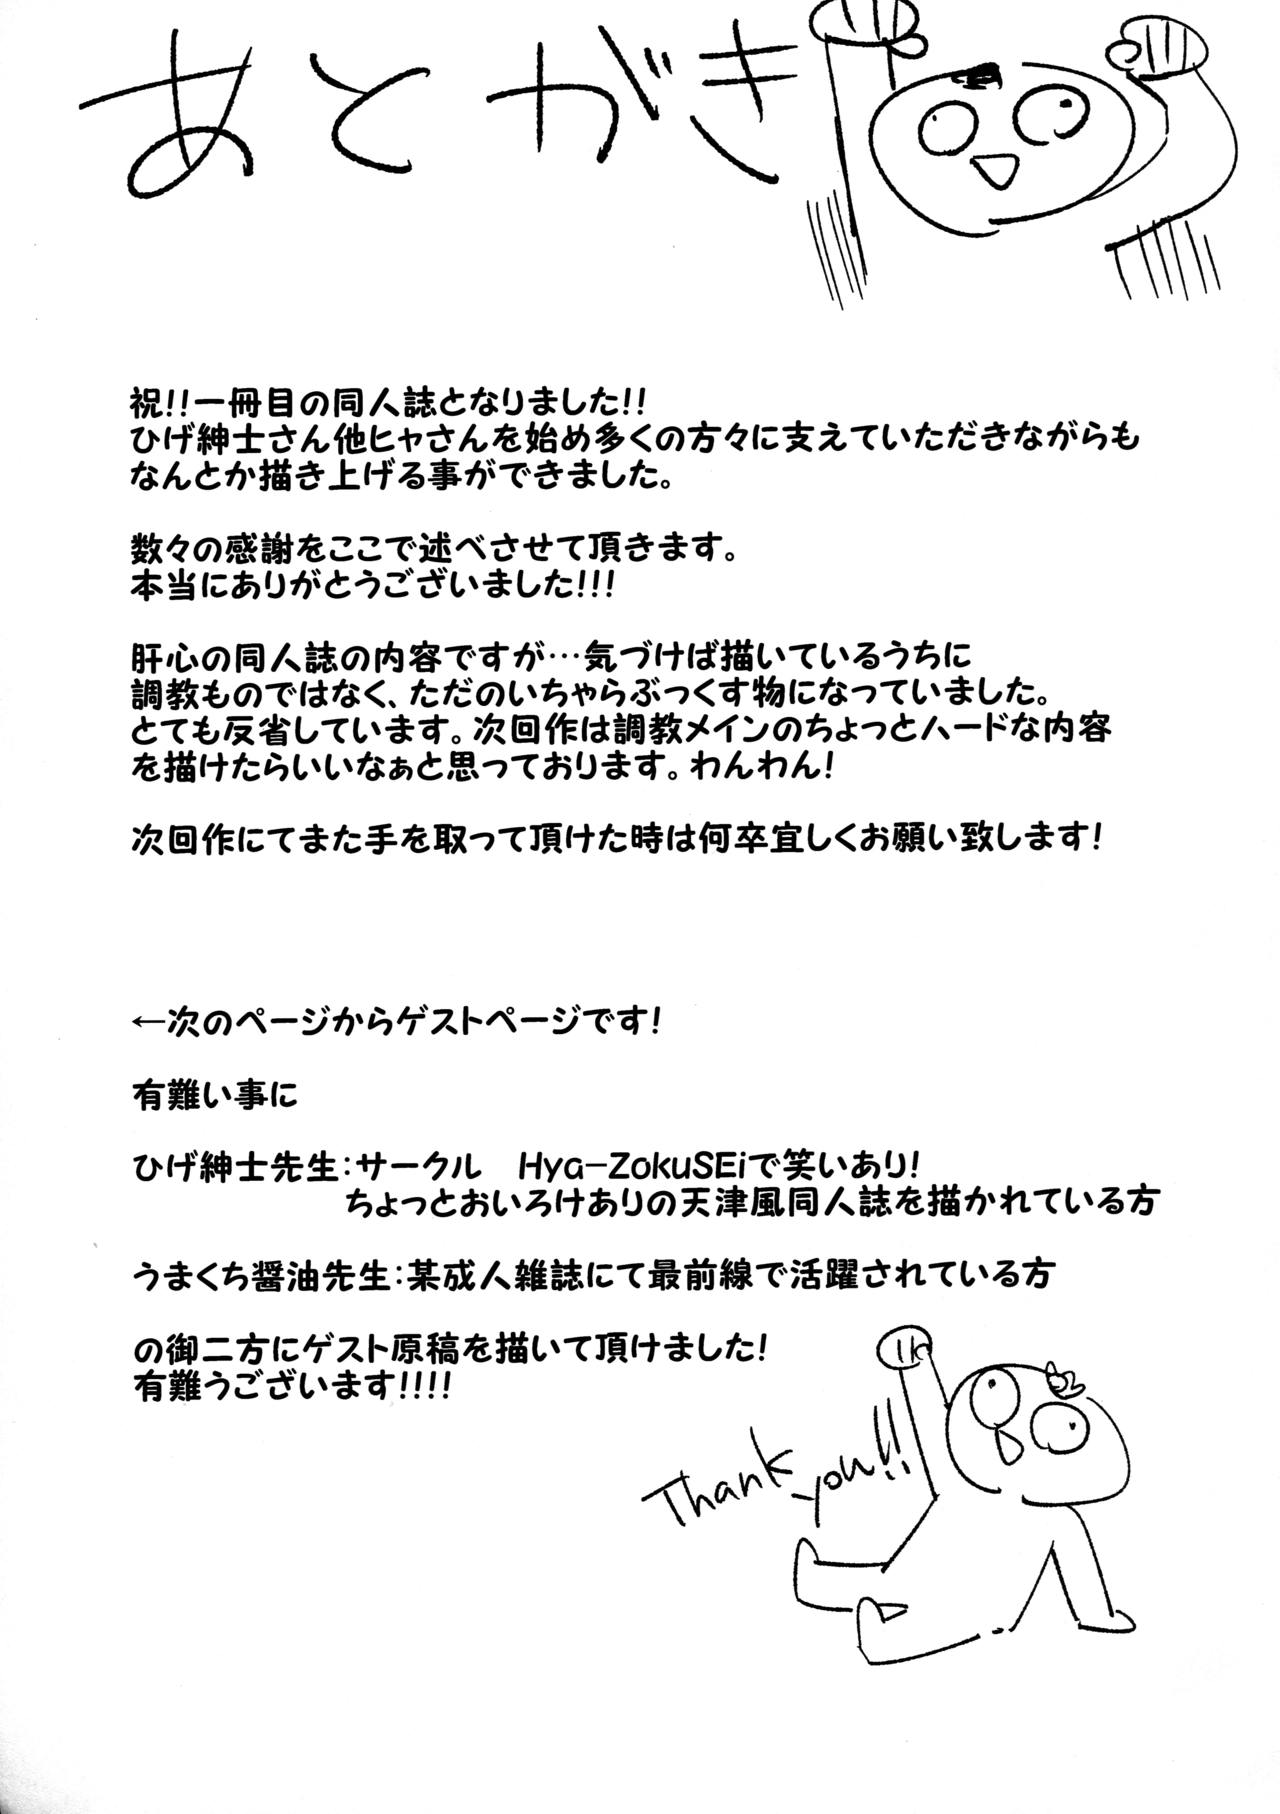 あとがき
祝!!一冊目の同人誌となりました!!
ひげ紳士さん他ヒャさんを始め多くの方々に支えていただきながらも
なんとか描き上げる事ができました。
数々の感謝をここで述べさせて頂きます。
本当にありがとうございました!!!
肝心の同人誌の内容ですが…気づけば描いているうちに
調教ものではなく、ただのいちゃらぶっくす物になっていました。
とても反省しています。次回作は調教メインのちょっとハードな内容
を描けたらいいなぁと思っております。わんわん!
次回作にてまた手を取って頂けた時は何卒宜しくお願い致します!
←次のページからゲストページです!
有難い事に
ひげ紳士先生:サークル　Hya-ZokuSEiで笑いあり!
ちょっとおいろけありの天津風同人誌を描かれている方
うまくち醤油先生:某成人雑誌にて最前線で活躍されている方
の御二方にゲスト原稿を描いて頂けました!
有難うございます!!!!
Thank you!!